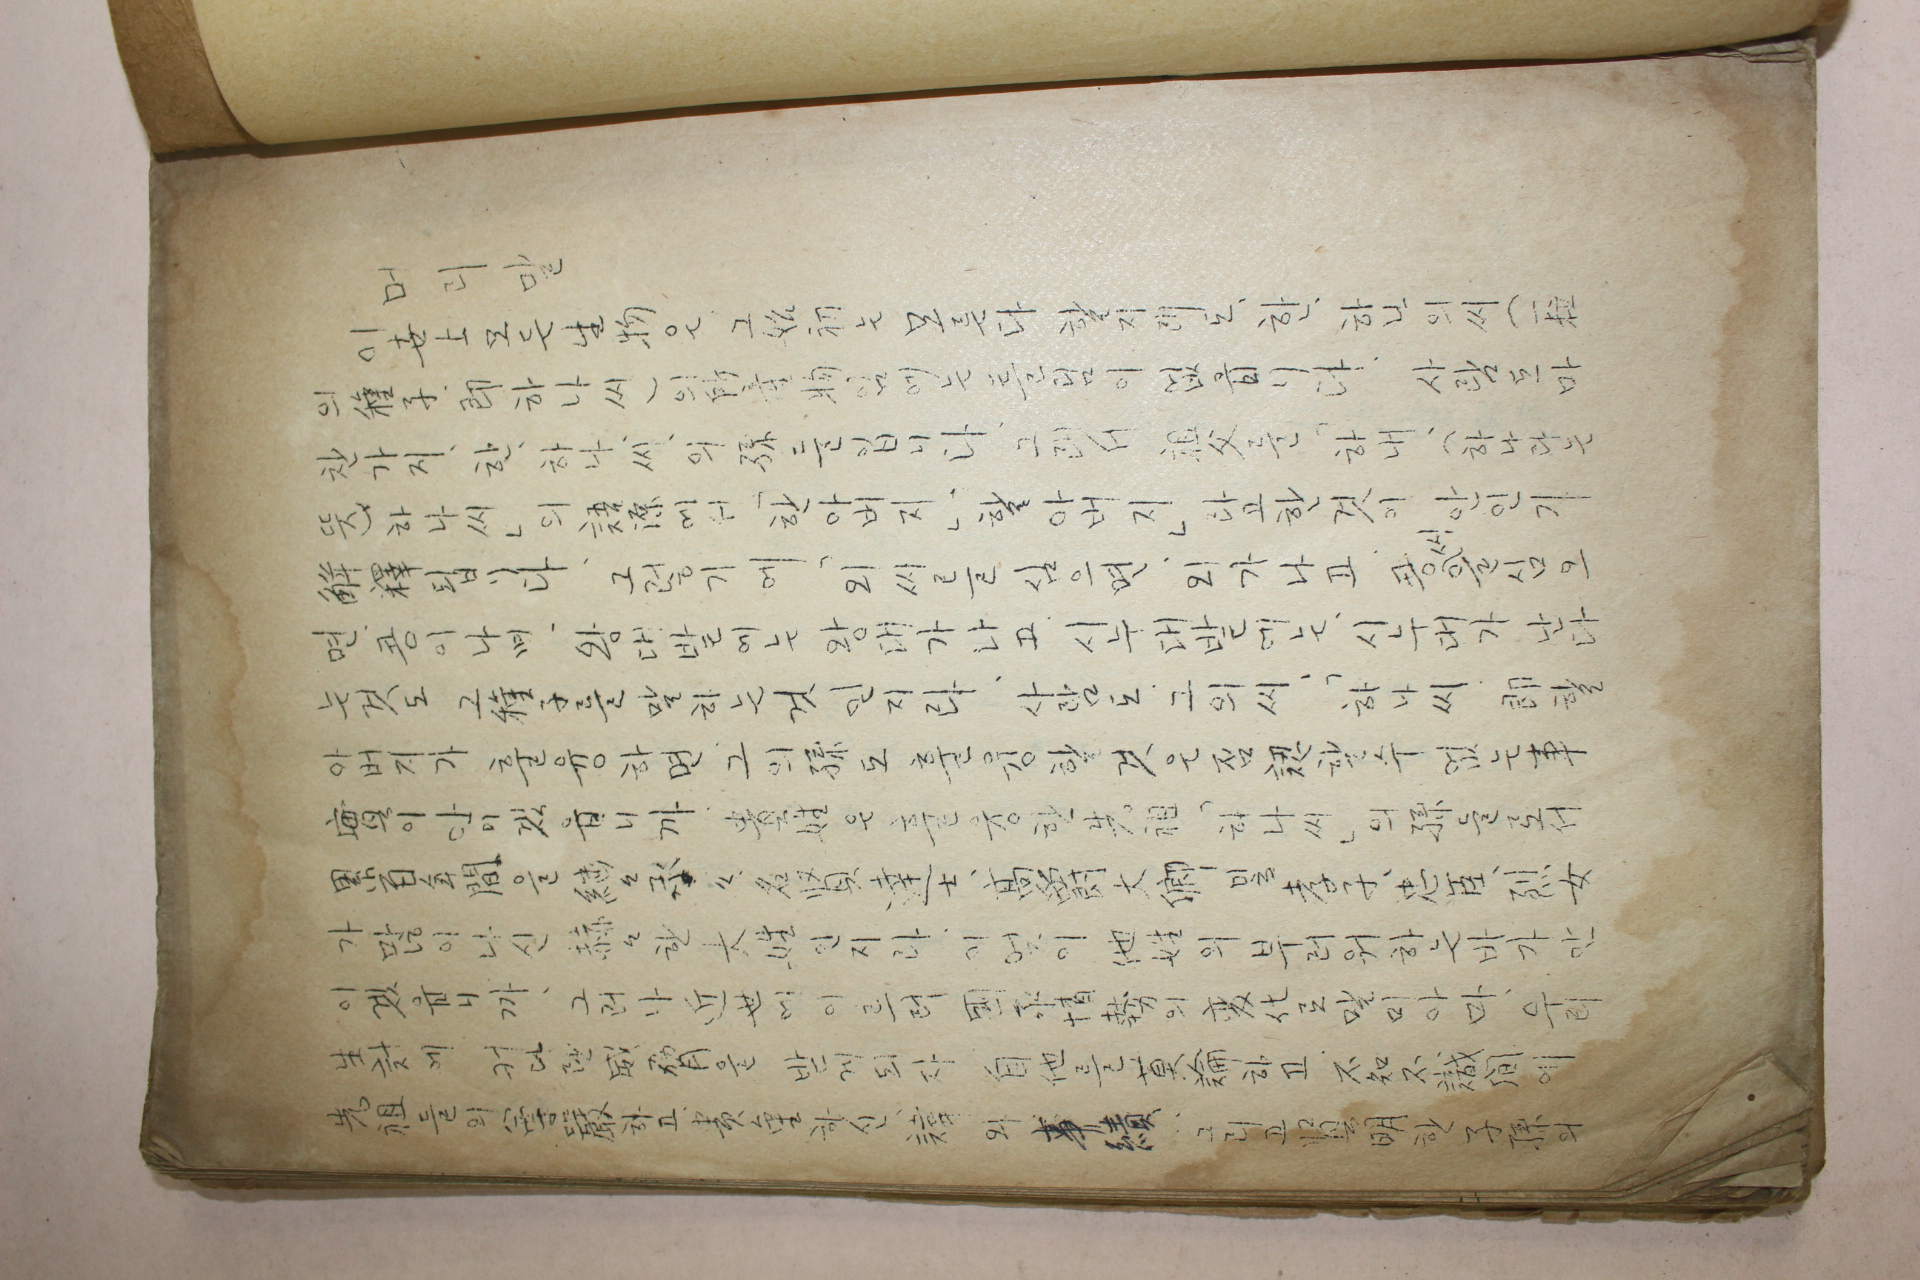 머리말
이 世上 모든 生物은, 그 始初는 모른다 할지래도, 한, 하나의 씨(一粒
의 種子, 即 하나씨)의 所產物임에는 틀림이 없읍니다. 사람도 마
찬가지, 한, 하나, 씨, 의 孫들입니다. 그래서 祖父를 「하내, (하나라는
뜻) 하나씨」의 語源에서 「한아버지」, 할아버지」라고 한것이 안인기
解釋됩니다. 그렇기에 「외씨를 심으면, 외가 나고, 콩씨을 심으
면, 콩이나며, 왕대밭에는 왕대가 나고, 시누대밭에는, 시누대가 난다
는것도 그 種子를 말하는것 인지라, 사람도, 그의 씨, 「하나씨, 即 할
아버지가 훌융하면, 그의 孫도 훌융할것은 否認할수 없는 事
實이 안이겠읍니까. 貴姓은 훌융한 先祖 「하나씨」의 孫들로서
累百年間을 継々承々, 名賢達士, 高爵大卿, 및 孝子, 忠臣, 烈女
가 많이 나신 赫々한 大姓인지라, 이 엇이 他姓의 부러워하는바가 안
이겠읍니까, 그러나 近世에 이르러 國家情勢의 変化로 말미아마, 우리
生計에 커다란 威脅을 받게되자 自他를 莫論하고, 不知不識間에
先祖들의 尊嚴하고, 貴重하신, 諱와 事績, 그리고 賢明한 子孫의